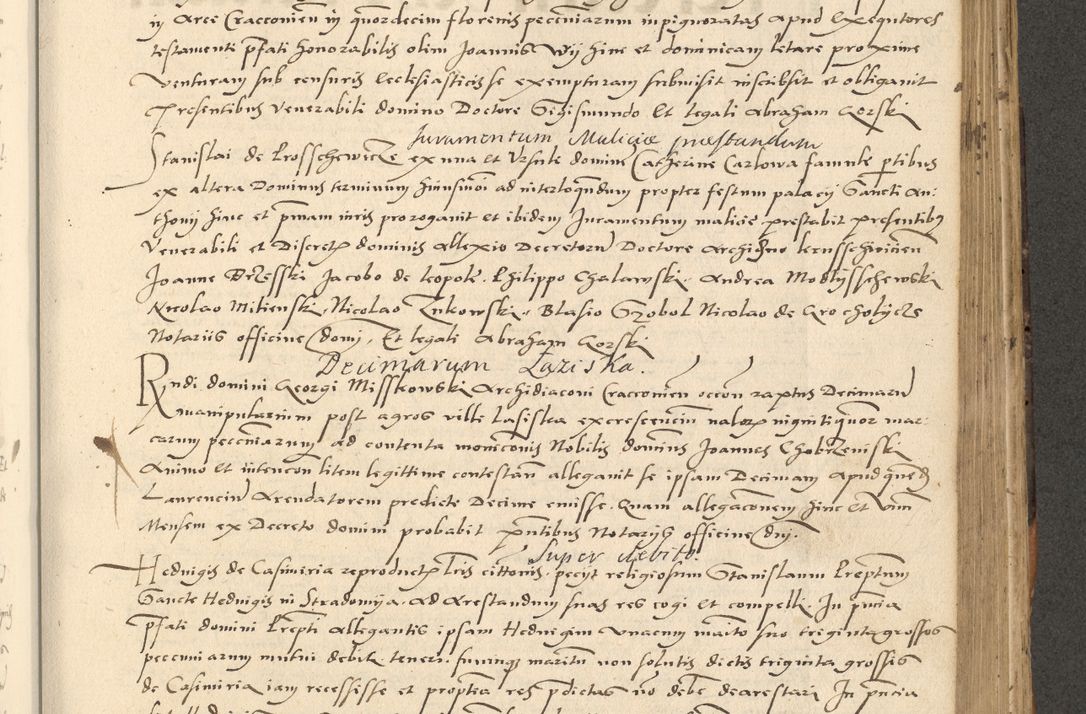 in Arce Cracconien in quordecim florenis pecuniarum inpignoratas apud exequtores
testamenti pfati honorabilis olim Joannis Wij hinc et dominicam letare proxime
venturam sub censuris Ecclesiasticis se exempturam submisit inscribsit et obligavit
Presentibus venerabili domino Doctore Sigismundo Et legali Abraham Gorski
Juramentum Malicie prestandum
Stanislai de Prosschewicze ex una et Ursule domine Catherine Carlowa famule ptibus
ex altera Dominus terminum huiusmoi ad interloqndum propter festum palacij Sancti An-
thonij hinc et pmam iuris prorogavit et ibidem Juramentum malicie prestabit presentibus
Venerabili et Discretis dominis Allexio Decretorum Doctore Archidno
Joanne Brzesski Jacobo de leopoli Philippo Chalawski Andrea Modlijsschewski
Nicolao Milienski, Nicolao Znkowski, Blasio Grobol Nicolao de Grocholijcze
Notariis officine domi, Et legali Abraham Gorski
Decimarum Laziska.
Rndi domini Georgi Misskowski Archidiaconi Cracconien occon raptus Decimaru
manipularium post agros ville Lasiska excrescencium valoris viginti quor mar-
carum pecuniarum ad contenta monicionis Nobilis dominus Joannes Chobrzeniski
Animo et intencon litem legittime contestan allegavit se ipsam Decimam apud quend
Laurenciu Arendatorem predicte Decime emisse. Quam allegaconem hinc et unu
Mensem ex Decreto domini probabit pntibus Notariis officine dni.
Super debito.
Hedvigis de Casimiria reproductis lris cittoriis, peciit religiosum Stanislaum Preptum
Sancte Hedvigis in Stradomija. Ad Arestandum suas res cogi et compelli. In pncia
pfati domini Prepti Allegantis ipsam Hedvigim unacum maito suo triginta grossos
pecuniarum mutui debiti teneri, suumque maritu non solutis dictis triginta grossis
de Casimiria iam recessisse et proptea res pdictas debe dearestari In pncia